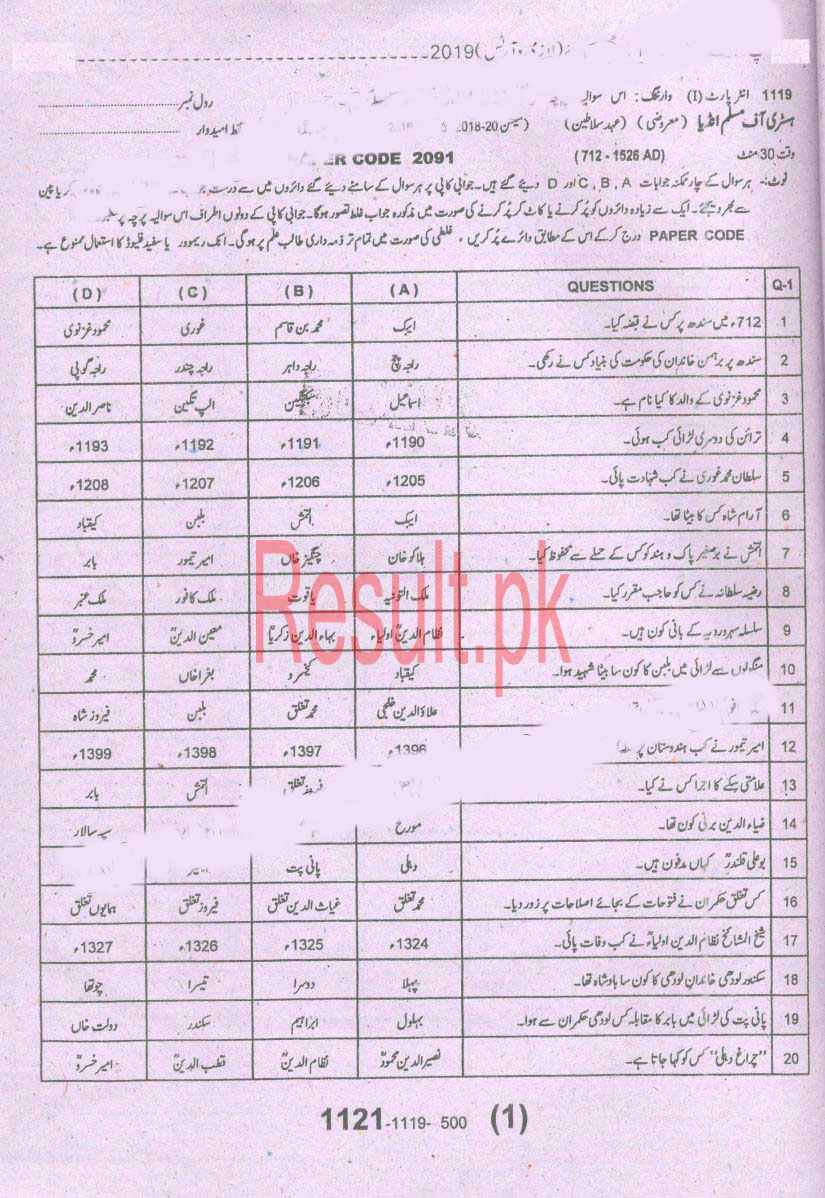 2019
1119 انٹر پارٹ (I) وارننگ: اس سوالیہ رول نمبر
ہسٹری آف مسلم انڈیا (معروضی) (عہد سلاطین) (سیشن 20-2018 امیدوار
وقت 30 منٹ (712 - 1526 AD) ER CODE 2091
نوٹ:- ہر سوال کے چار ممکنہ جوابات A ، B ، C اور D دیئے گئے ہیں۔ جوابی کاپی پر ہر سوال کے سامنے دیئے گئے دائروں میں سے درست
سے بھر دیجئے۔ ایک سے زیادہ دائروں کو پُر کرنے یا کاٹ کر پُر کرنے کی صورت میں مذکورہ جواب غلط تصور ہوگا۔ جوابی کاپی کے دونوں اطراف اس سوالیہ پرچہ پر
PAPER CODE درج کر کے اس کے مطابق دائرے پُر کریں ، غلطی کی صورت میں تمام تر ذمہ داری طالب علم پر ہوگی۔ انک ریموور یا سفید فلیوڈ کا استعمال ممنوع ہے۔
Q-1 QUESTIONS (A) (B) (C) (D)
1 712ء میں سندھ پر کس نے قبضہ کیا۔ ایبک محمد بن قاسم غوری محمود غزنوی
2 سندھ پر برہمن خاندان کی حکومت کی بنیاد کس نے رکھی۔ راجہ چچ راجہ داہر راجہ چندر راجہ گوپی
3 محمود غزنوی کے والد کا کیا نام ہے۔ اسماعیل سبکتگین الپ تگین ناصر الدین
4 ترائن کی دوسری لڑائی کب ہوئی۔ 1190ء 1191ء 1192ء 1193ء
5 سلطان محمد غوری نے کب شہادت پائی۔ 1205ء 1206ء 1207ء 1208ء
6 آرام شاہ کس کا بیٹا تھا۔ ایبک التمش بلبن کیقباد
7 التمش نے برصغیر پاک و ہند کو کس کے حملے سے محفوظ کیا۔ ہلاکو خان چنگیز خاں امیر تیمور بابر
8 رضیہ سلطانہ نے کس کو حاجب مقرر کیا۔ ملک التونیہ یاقوت ملک کافور ملک عنبر
9 سلسلہ سہروردیہ کے بانی کون ہیں۔ نظام الدین اولیاء بہاء الدین زکریا معین الدینؒ امیر خسروؒ
10 منگولوں سے لڑائی میں بلبن کا کون سا بیٹا شہید ہوا۔ کیقباد کیخسرو بغرا خاں محمد
11 علاؤالدین خلجی محمد تغلق بلبن فیروز شاہ
12 امیر تیمور نے کب ہندوستان پر 1396ء 1397ء 1398ء 1399ء
13 علامتی سکے کا اجرا کس نے کیا۔ فیروز تغلق التمش بابر
14 ضیاء الدین برنی کون تھا۔ مورخ سپہ سالار
15 بوعلی قلندرؒ کہاں مدفون ہیں۔ دہلی پانی پت
16 کس تغلق حکمران نے فتوحات کے بجائے اصلاحات پر زور دیا۔ محمد تغلق غیاث الدین تغلق فیروز تغلق ہمایوں تغلق
17 شیخ المشائخ نظام الدین اولیاءؒ نے کب وفات پائی۔ 1324ء 1325ء 1326ء 1327ء
18 سکندر لودھی خاندان لودھی کا کون سا بادشاہ تھا۔ پہلا دوسرا تیسرا چوتھا
19 پانی پت کی لڑائی میں بابر کا مقابلہ کس لودھی حکمران سے ہوا۔ بہلول ابراہیم سکندر دولت خاں
20 ”چراغ دہلی“ کس کو کہا جاتا ہے۔ نصیر الدین محمودؒ نظام الدینؒ قطب الدینؒ امیر خسروؒ
Result.pk
1121-1119- 500 (1)